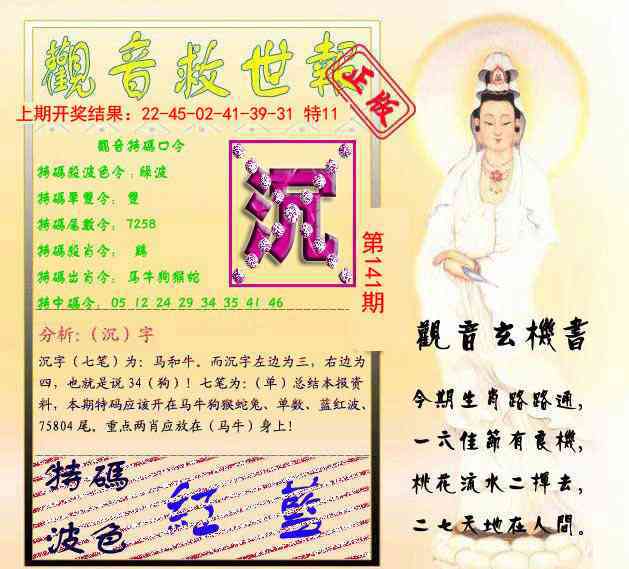 觀音救世報
正版
上期开奖结果：22-45-02-41-39-31 特11
觀音特碼口令
特碼殺波色令：綠波
特碼單雙令： 雙
特碼尾數令： 7258
特碼殺肖令： 鷄
特碼出肖令： 马牛狗猴蛇
特中碼令： 05 12 24 29 34 35 41 46
沉
第141期
分析：（沉）字
沉字（七笔）为：马和牛。而沉字左边为三，右边为
四，也就是说 34（狗）！七笔为：（单）总结本报资
料，本期特码应该开在马牛狗猴蛇兔、单数、蓝红波、
75804 尾。重点两肖应放在（马牛）身上！
特碼
波色
紅 藍
觀音玄機書
今期生肖路路通，
一六佳節有良機，
桃花流水二揮去，
二七天地在人間。